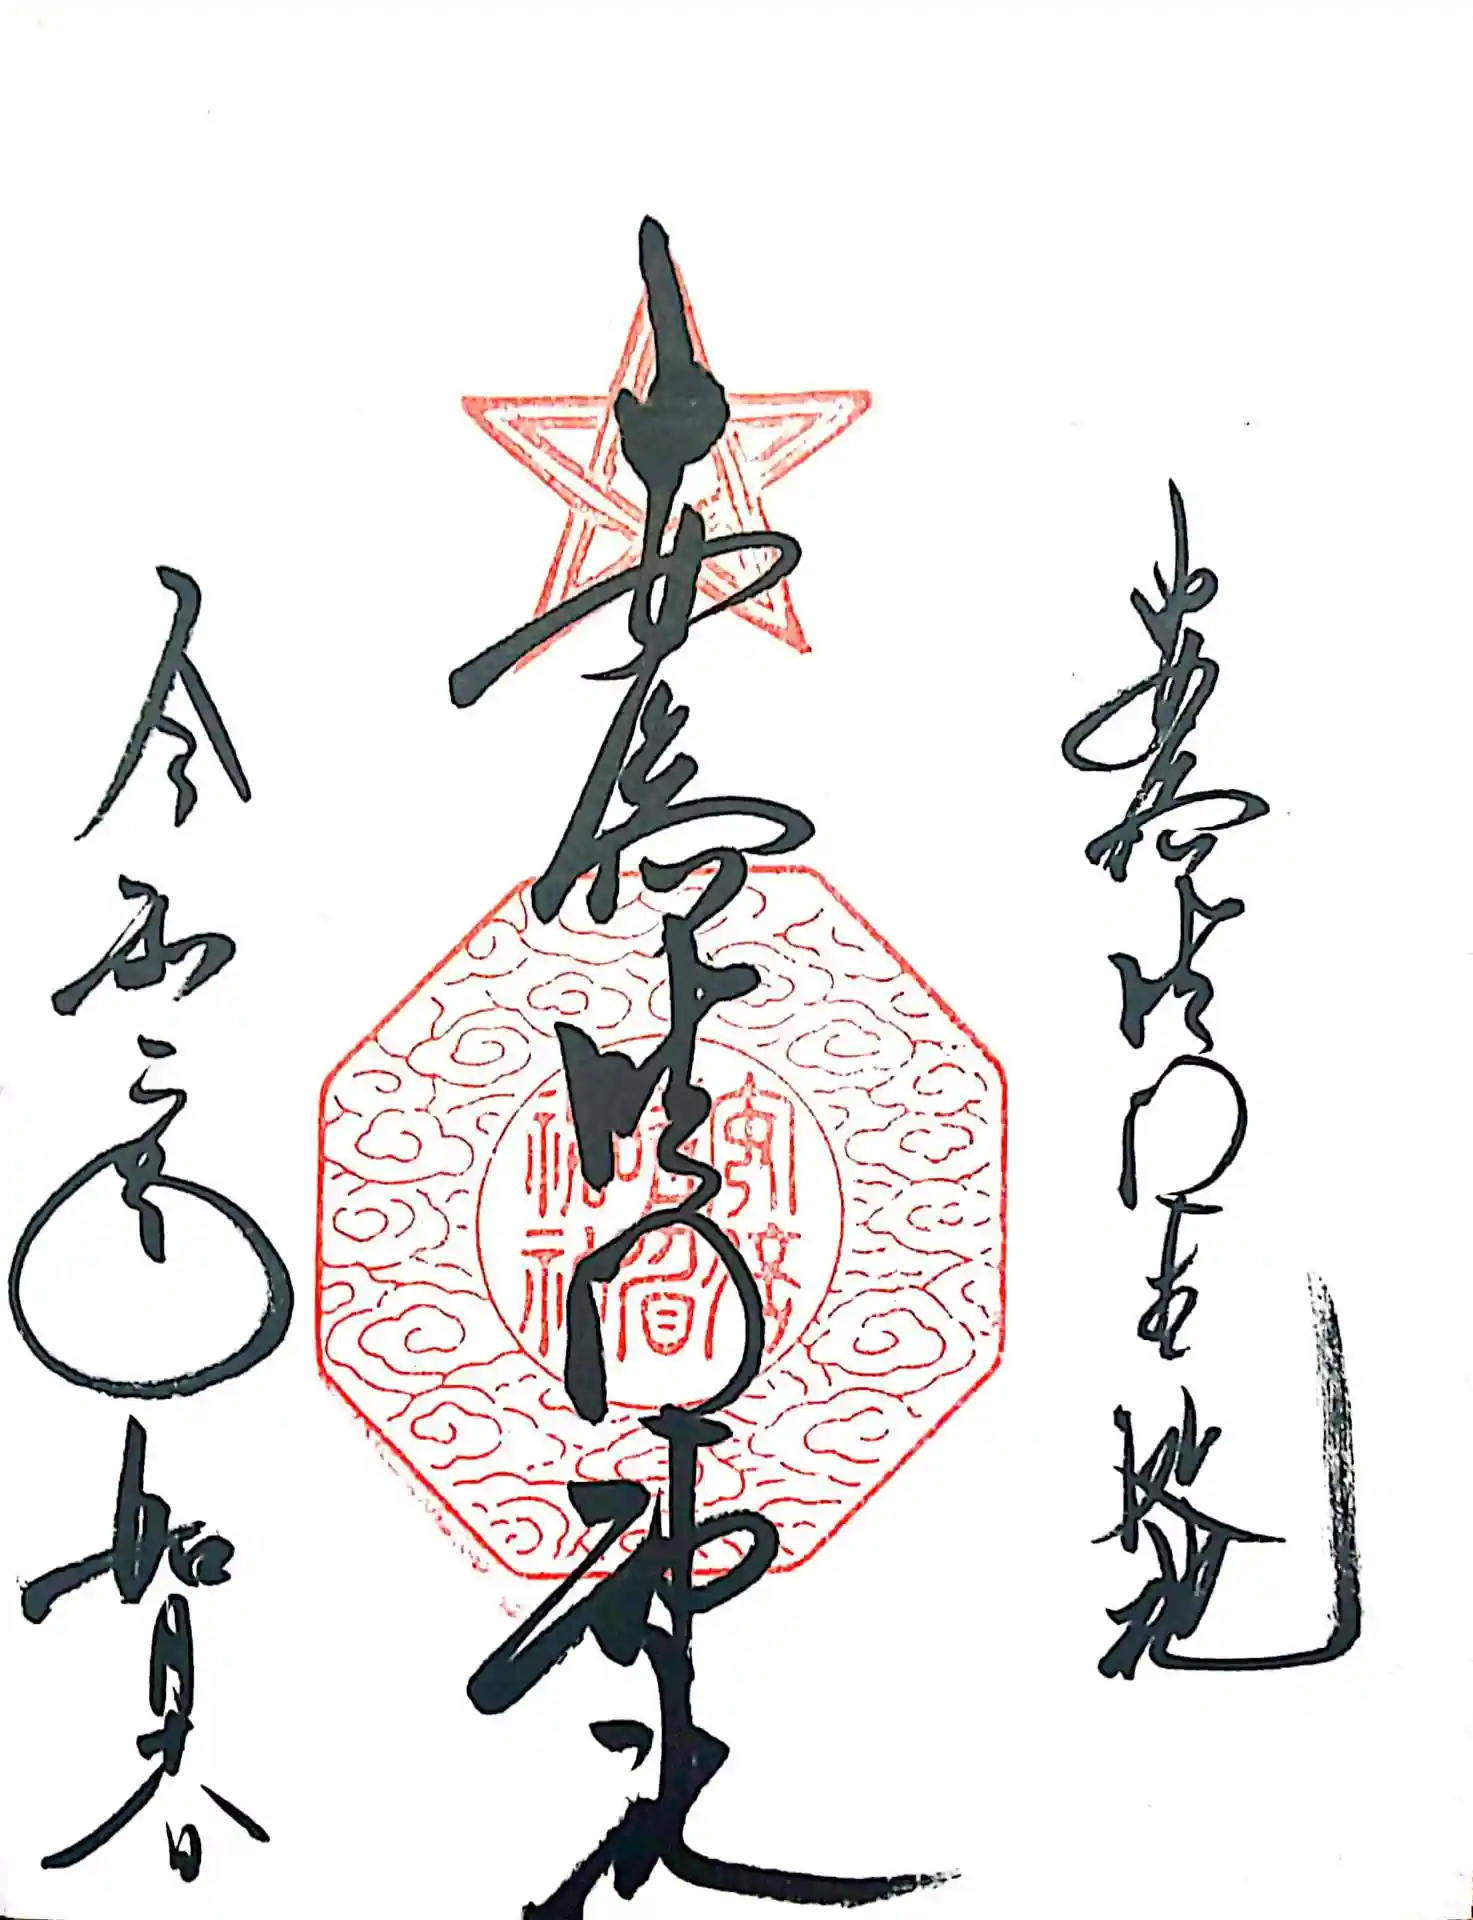 安倍晴明生誕地
安倍晴明神社
令和二年如月十八日
安倍
晴明
神社